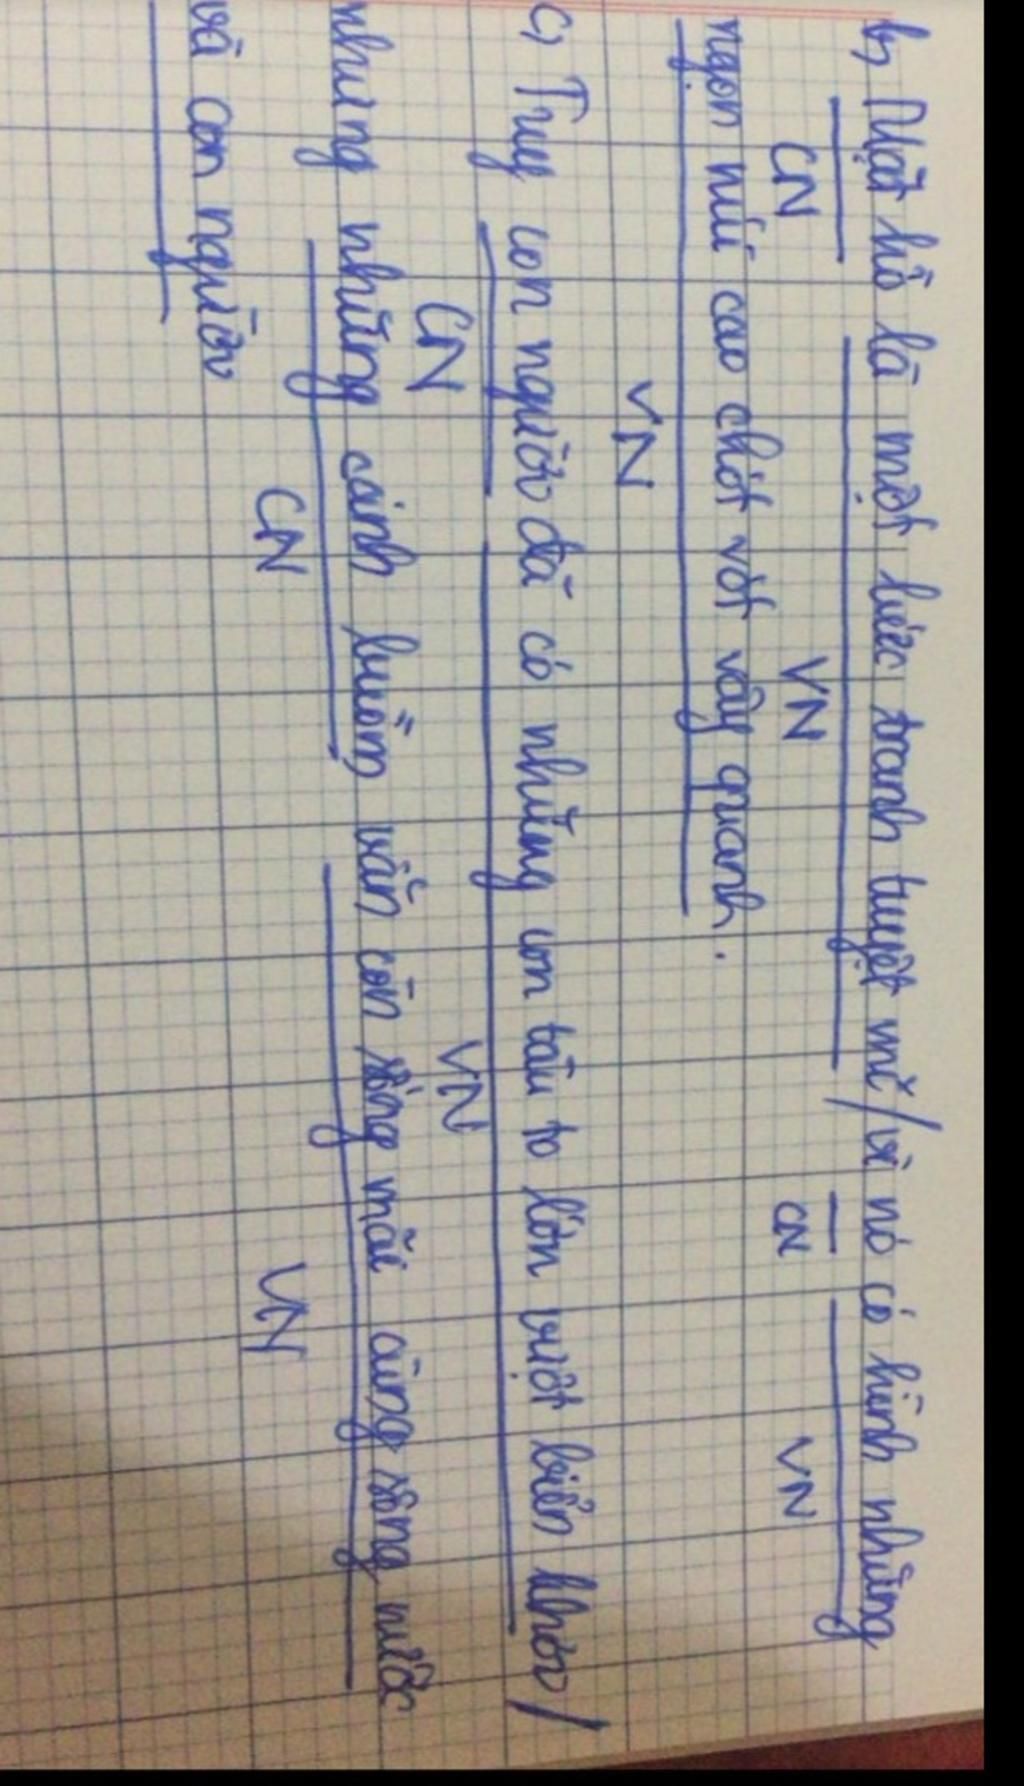 b, Mặt hồ là một bức tranh tuyệt mĩ / vì nó có hình những
CN VN CN VN
ngọn núi cao chót vót vây quanh.
VN
c, Tuy con người đã có những con tàu to lớn vượt biển khơi /
CN VN
nhưng những cánh buồm vẫn còn sống mãi cùng sông nước
CN VN
và con người